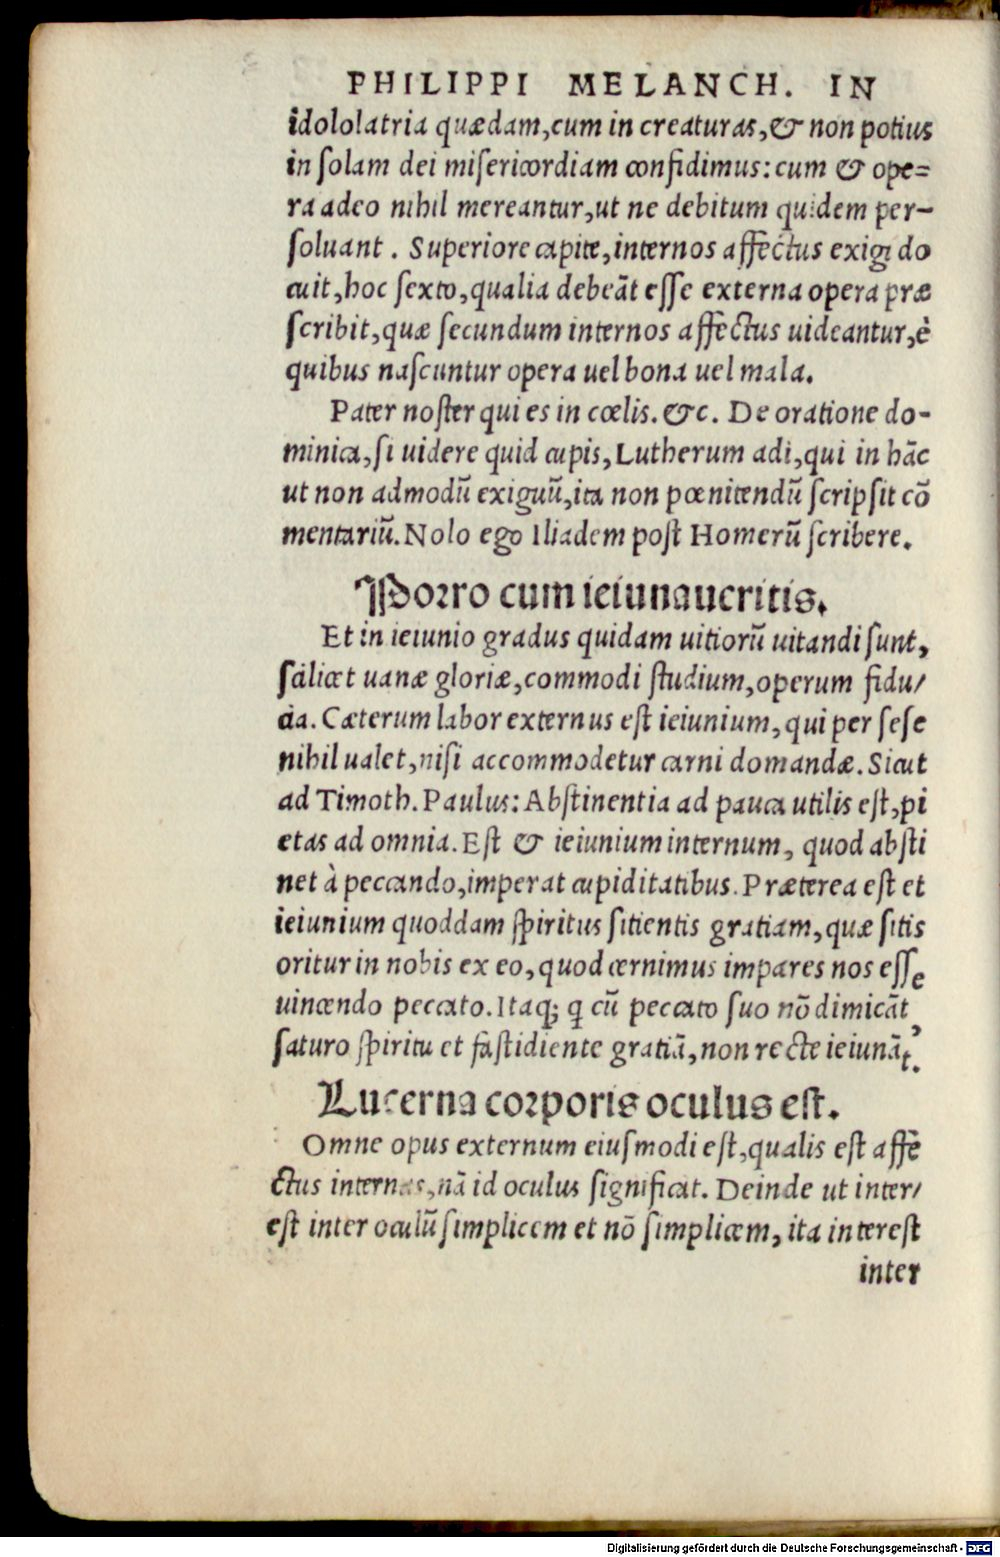 PHILIPPI MELANCH. IN
idololatria quædam,cum in creaturas,& non potius
in solam dei misericordiam confidimus:cum & ope=
ra adeo nihil mereantur,ut ne debitum quidem per-
soluant . Superiore capite,internos affectus exigi do
cuit,hoc sexto,qualia debeãt esse externa opera præ
scribit,quæ secundum internos affectus uideantur,è
quibus nascuntur opera uel bona uel mala.
Pater noster qui es in cœlis.&c. De oratione do-
minica,si uidere quid cupis,Lutherum adi,qui in hãc
ut non admodũ exiguũ,ita non pœnitendũ scripsit cõ
mentariũ.Nolo ego Iliadem post Homerũ scribere.
Porro cum ieiunaueritis.
Et in ieiunio gradus quidam uitiorũ uitandi sunt,
scilicet uanæ gloriæ,commodi studium,operum fidu/
cia. Cæterum labor externus est ieiunium,qui per sese
nihil ualet,nisi accommodetur carni domandæ.Sicut
ad Timoth.Paulus:Abstinentia ad pauca utilis est,pi
etas ad omnia.Est & ieiunium internum, quod absti
net à peccando,imperat cupiditatibus.Præterea est et
ieiunium quoddam spiritus sitientis gratiam,quæ sitis
oritur in nobis ex eo,quod cernimus impares nos esse
uincendo peccato.Itaq; q cũ peccato suo nõ dimicãt,
saturo spiritu et fastidiente gratiã,non recte ieiunãt.
Lucerna corporis oculus est.
Omne opus externum eiusmodi est,qualis est affe
ctus internus,nã id oculus significat. Deinde ut inter/
est inter oculũ simplicem et nõ simplicem, ita interest
inter
Digitalisierung gefördert durch die Deutsche Forschungsgemeinschaft - DFG